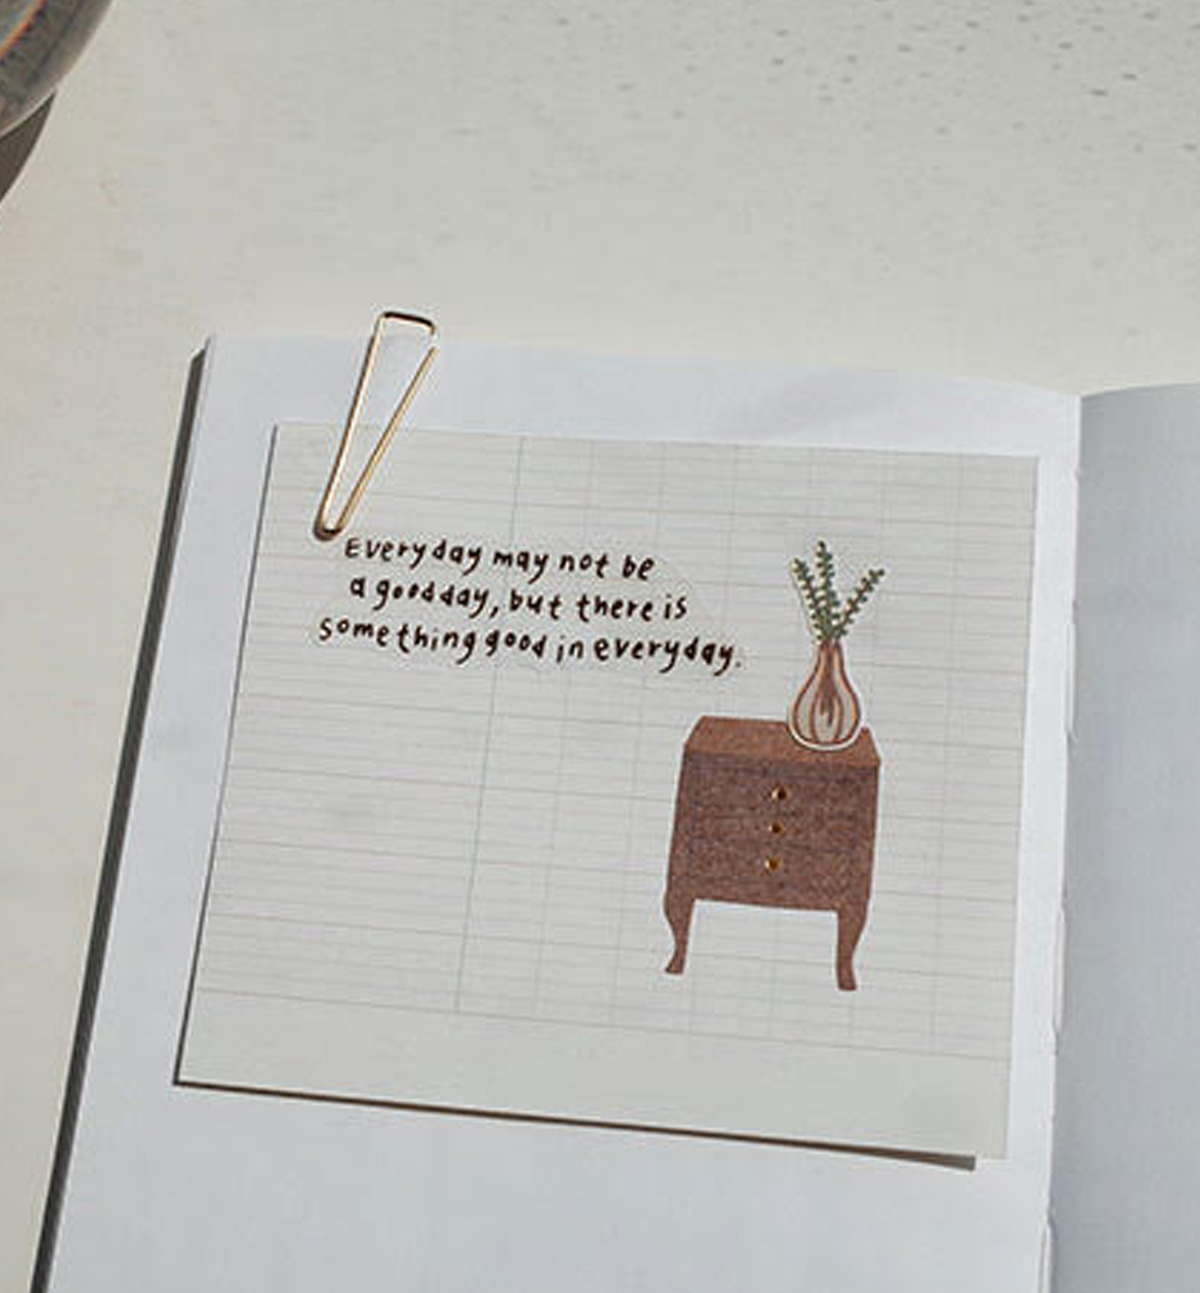 Everyday may not be
a good day, but there is
something good in everyday.